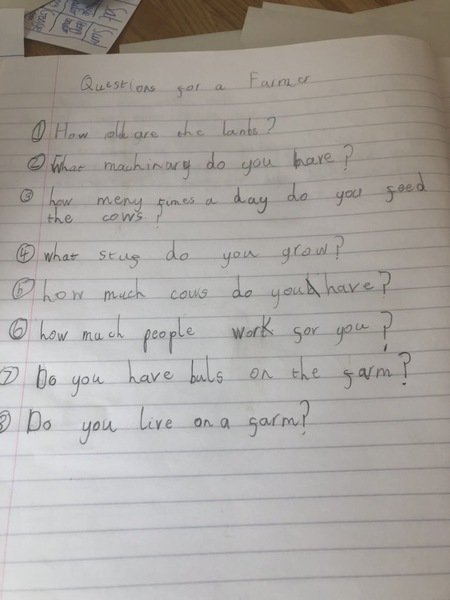 Questions for a Farmer
① How old are the lanbs?
② What machinary do you have?
③ how meny times a day do you feed
the cows?
④ what stuf do you grow?
⑤ how much cows do you have?
⑥ how much people work for you?
⑦ Do you have buls on the farm?
⑧ Do you live on a farm?